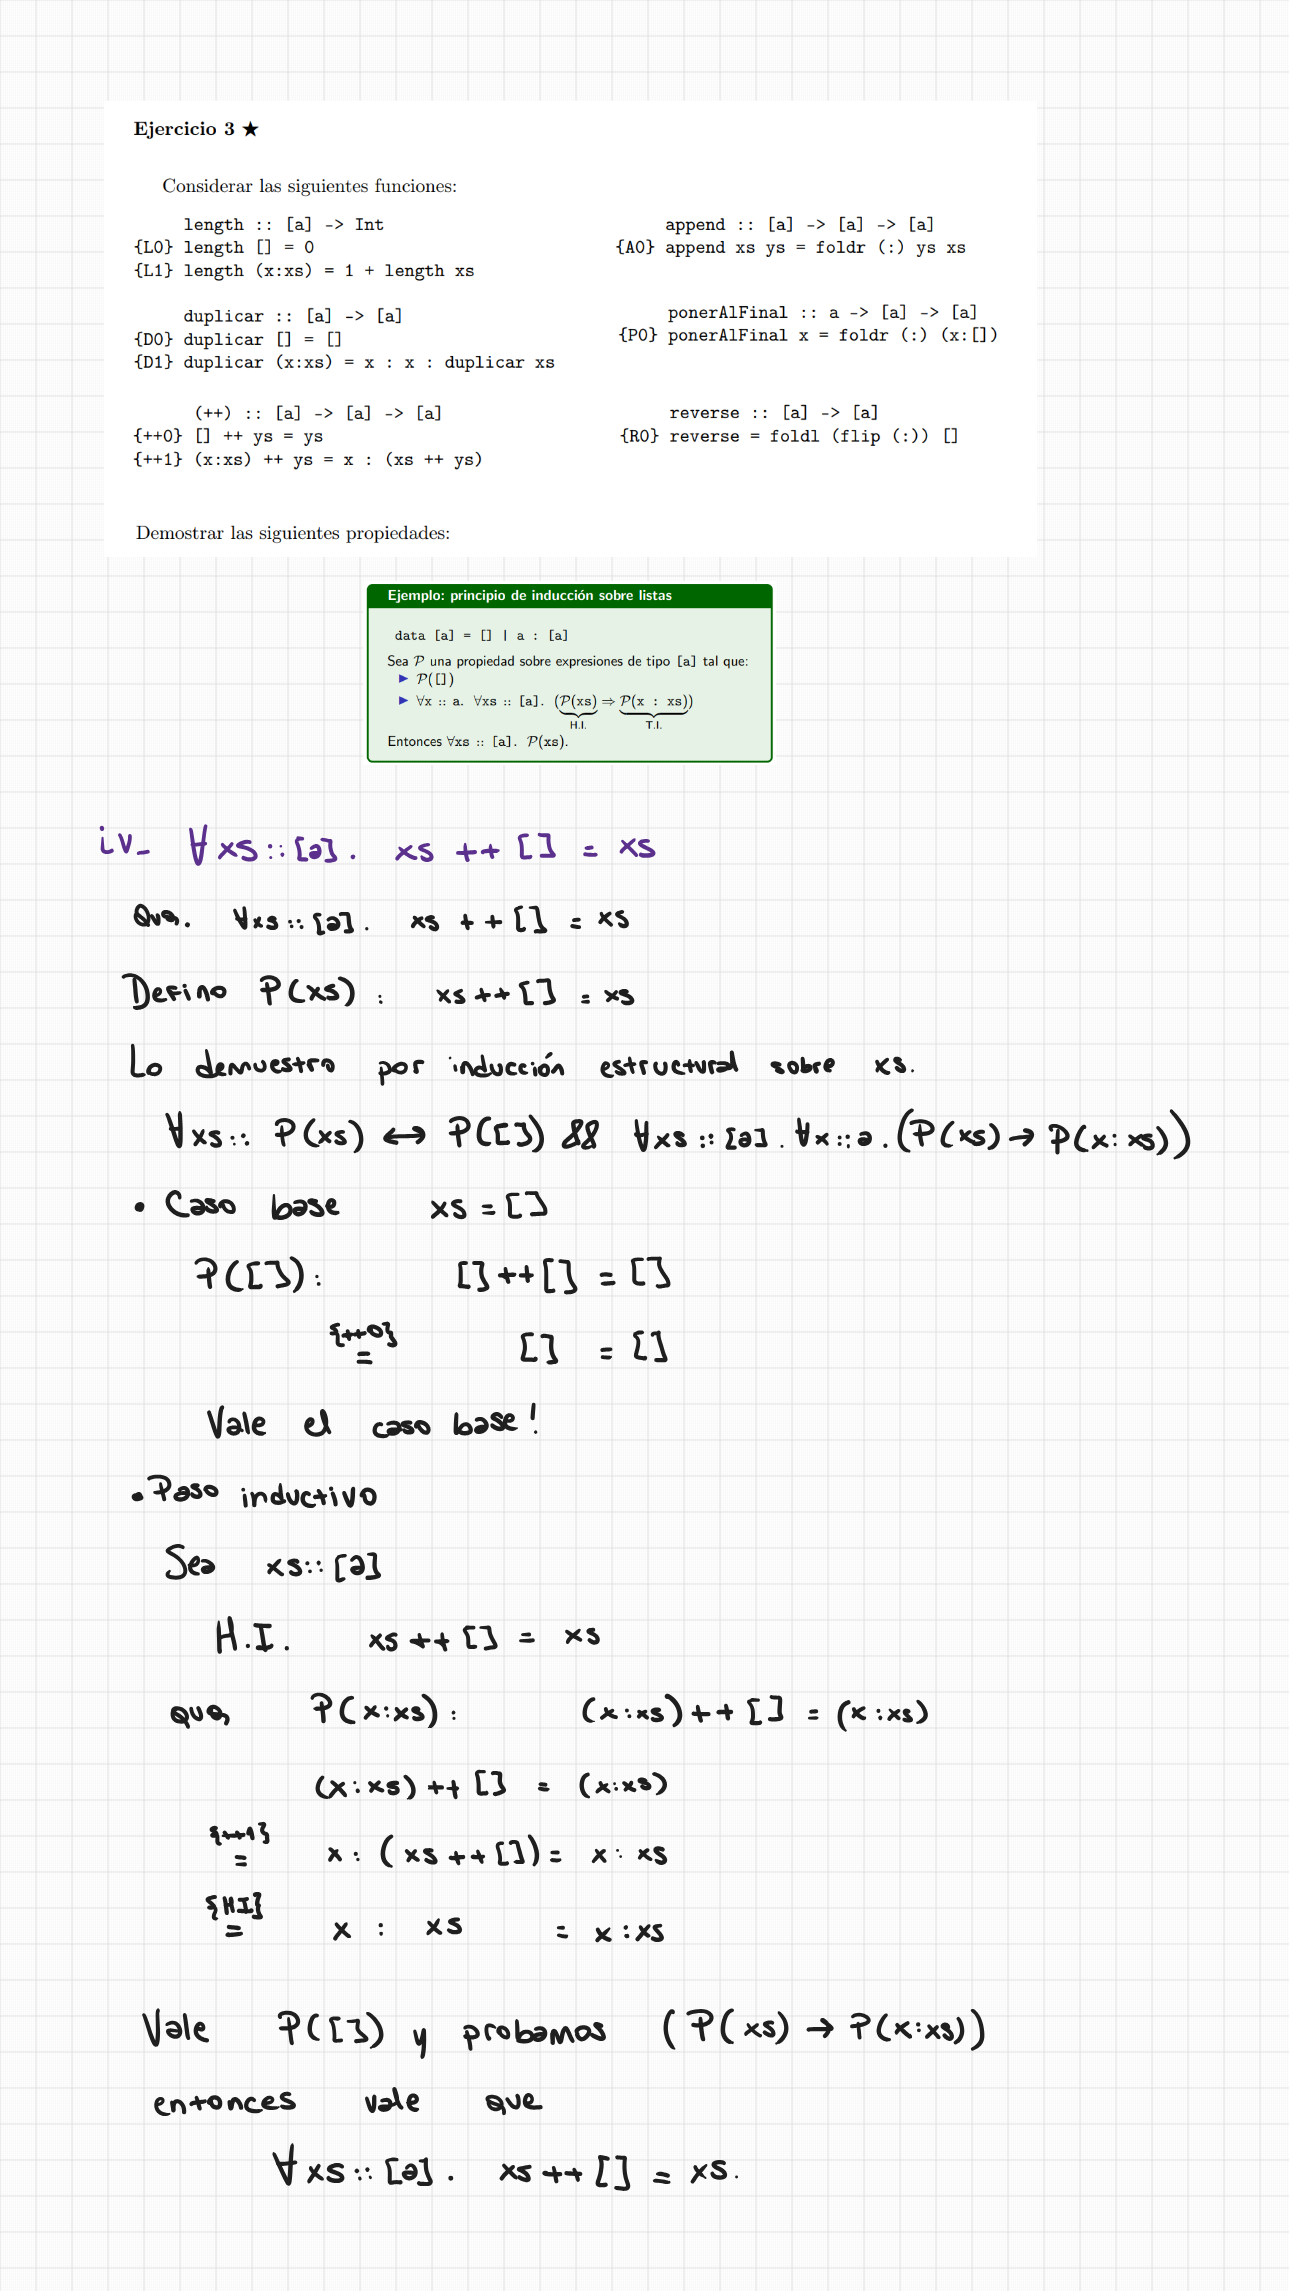 Ejercicio 3 ★
Considerar las siguientes funciones:
length :: [a] -> Int
{L0} length [] = 0
{L1} length (x:xs) = 1 + length xs
append :: [a] -> [a] -> [a]
{A0} append xs ys = foldr (:) ys xs
duplicar :: [a] -> [a]
{D0} duplicar [] = []
{D1} duplicar (x:xs) = x : x : duplicar xs
ponerAlFinal :: a -> [a] -> [a]
{P0} ponerAlFinal x = foldr (:) (x:[])
(++) :: [a] -> [a] -> [a]
{++0} [] ++ ys = ys
{++1} (x:xs) ++ ys = x : (xs ++ ys)
reverse :: [a] -> [a]
{R0} reverse = foldl (flip (:)) []
Demostrar las siguientes propiedades:
Ejemplo: principio de inducción sobre listas
data [a] = [] | a : [a]
Sea 𝒫 una propiedad sobre expresiones de tipo [a] tal que:
▶ 𝒫([])
▶ ∀x :: a. ∀xs :: [a]. (𝒫(xs) ⇒ 𝒫(x : xs))
H.I. T.I.
Entonces ∀xs :: [a]. 𝒫(xs).
iv_ ∀xs::[a]. xs ++ [] = xs
Qvq. ∀xs::[a]. xs ++ [] = xs
Defino P(xs): xs ++ [] = xs
Lo demuestro por inducción estructural sobre xs.
∀xs:: P(xs) ↔ P([]) && ∀xs::[a]. ∀x::a. (P(xs) → P(x:xs))
• Caso base xs = []
P([]): [] ++ [] = []
{++0}
= [] = []
Vale el caso base!
• Paso inductivo
Sea xs::[a]
H.I. xs ++ [] = xs
qvq P(x:xs): (x:xs) ++ [] = (x:xs)
(x:xs) ++ [] = (x:xs)
{++1}
= x : (xs ++ []) = x : xs
{HI}
= x : xs = x : xs
Vale P([]) y probamos (P(xs) → P(x:xs))
entonces vale que
∀xs::[a]. xs ++ [] = xs.